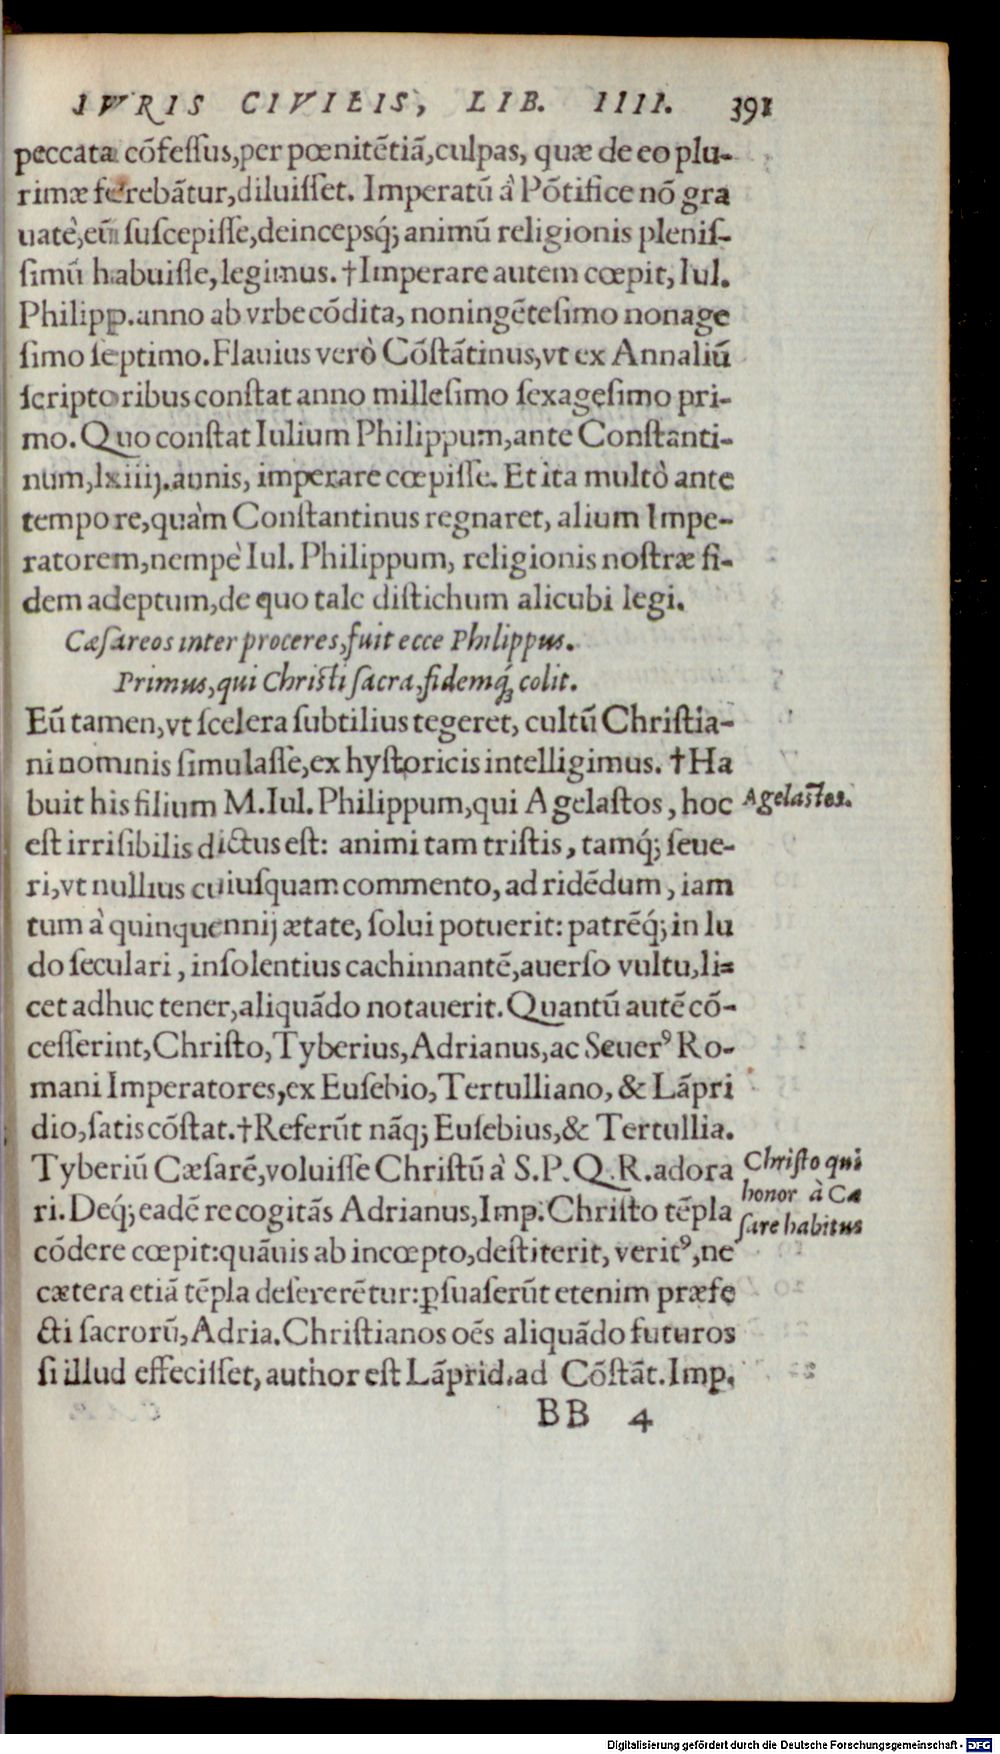 IVRIS CIVILIS, LIB. IIII. 391
peccata cõfessus,per pœnitẽtiã,culpas, quæ de eo plu-
rimæ ferebãtur,diluisset. Imperatũ à Põtifice nõ gra
uatè,eũ suscepisse,deincepsq́; animũ religionis plenis-
simũ habuisse,legimus. †Imperare autem cœpit, Iul.
Philipp.anno ab vrbe cõdita, noningẽtesimo nonage
simo septimo. Flauius verò Cõstãtinus,vt ex Annaliũ
scriptoribus constat anno millesimo sexagesimo pri-
mo. Quo constat Iulium Philippum,ante Constanti-
num,lxiiij.annis, imperare cœpisse. Et ita multò ante
tempore,quàm Constantinus regnaret, alium Impe-
ratorem,nempè Iul. Philippum, religionis nostræ fi-
dem adeptum,de quo tale distichum alicubi legi.
Cæsareos inter proceres,fuit ecce Philippus.
Primus,qui Christi sacra,fidemq́; colit.
Eũ tamen,vt scelera subtilius tegeret, cultũ Christia-
ni nominis simulasse,ex hystoricis intelligimus. †Ha
buit his filium M.Iul. Philippum,qui Agelastos, hoc
Agelastos.
est irrisibilis dictus est: animi tam tristis, tamq́; seue-
ri,vt nullius cuiusquam commento, ad ridẽdum, iam
tum à quinquennij ætate, solui potuerit: patrẽq́; in lu
do seculari, insolentius cachinnantẽ,auerso vultu,li-
cet adhuc tener,aliquãdo notauerit. Quantũ autẽ cõ-
cesserint,Christo,Tyberius,Adrianus,ac Seuerꝰ Ro-
mani Imperatores,ex Eusebio, Tertulliano, & Lãpri
dio,satis cõstat.†Referũt nãq; Eusebius,& Tertullia.
Tyberiũ Cæsarẽ,voluisse Christũ à S.P.Q.R.adora
Christo qui
honor à Cæ
sare habitus
ri. Deq́; eadẽ recogitãs Adrianus,Imp.Christo tẽpla
cõdere cœpit:quãuis ab incœpto,destiterit, veritꝰ,ne
cætera etiã tẽpla desererẽtur:ꝑsuaserũt etenim præfe
cti sacrorũ,Adria.Christianos oẽs aliquãdo futuros
si illud effecisset, author est Lãprid.ad Cõstãt.Imp.
BB 4
Digitalisierung gefördert durch die Deutsche Forschungsgemeinschaft - DFG